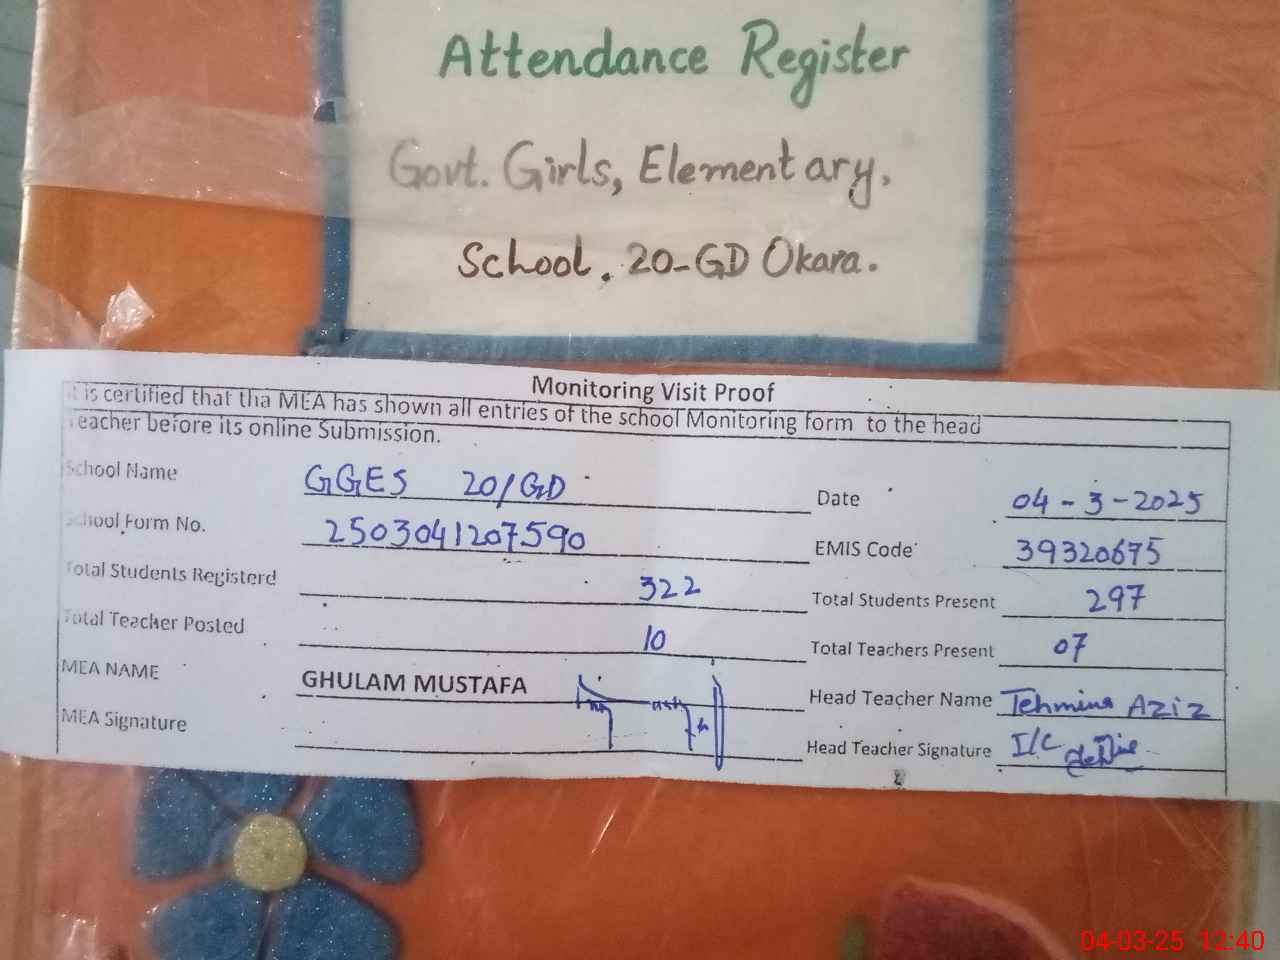 Attendance Register
Govt. Girls, Elementary,
School, 20-GD Okara.
Monitoring Visit Proof
It is certified that tha MEA has shown all entries of the school Monitoring form to the head
Teacher before its online Submission.
School Name GGES 20/GD Date 04-3-2025
School Form No. 2503041207590 EMIS Code 39320675
Total Students Registerd 322 Total Students Present 297
Total Teacher Posted 10 Total Teachers Present 07
MEA NAME GHULAM MUSTAFA Head Teacher Name Tehmina Aziz
MEA Signature Head Teacher Signature I/C
04-03-25 12:40